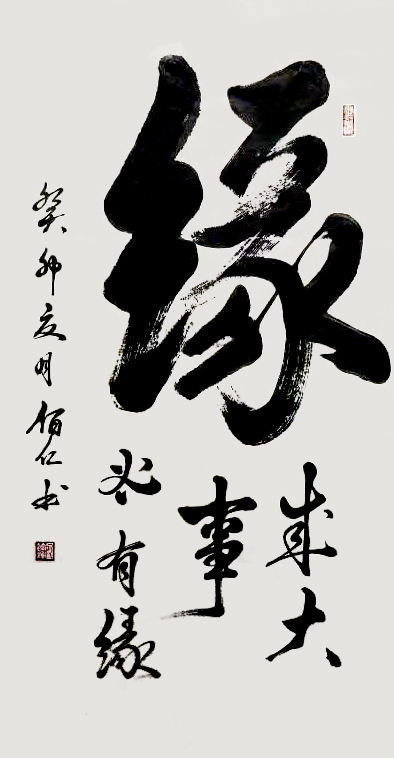 缘
成大
事
必有缘
癸卯夏月佰仁书